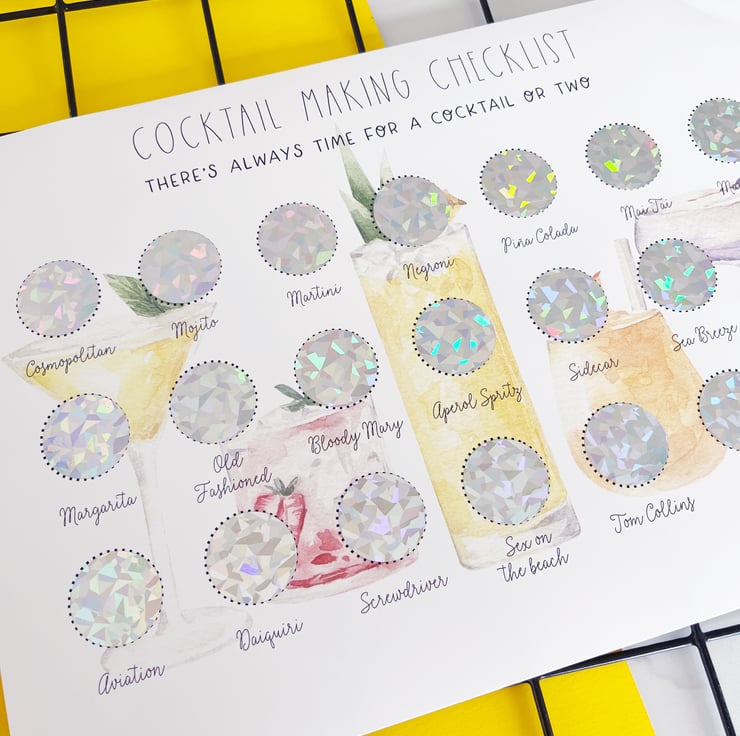 COCKTAIL MAKING CHECKLIST
THERE'S ALWAYS TIME FOR A COCKTAIL OR TWO
Cosmopolitan
Mojito
Martini
Negroni
Piña Colada
Mai Tai
Margarita
Old
Fashioned
Bloody Mary
Aperol Spritz
Sidecar
Sea Breeze
Aviation
Daiquiri
Screwdriver
Sex on
the beach
Tom Collins